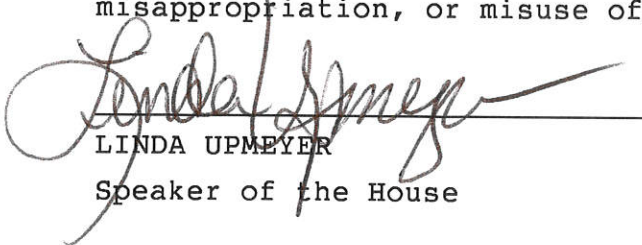 misappropriation, or misuse of
Linda Upmeyer
LINDA UPMEYER
Speaker of the House